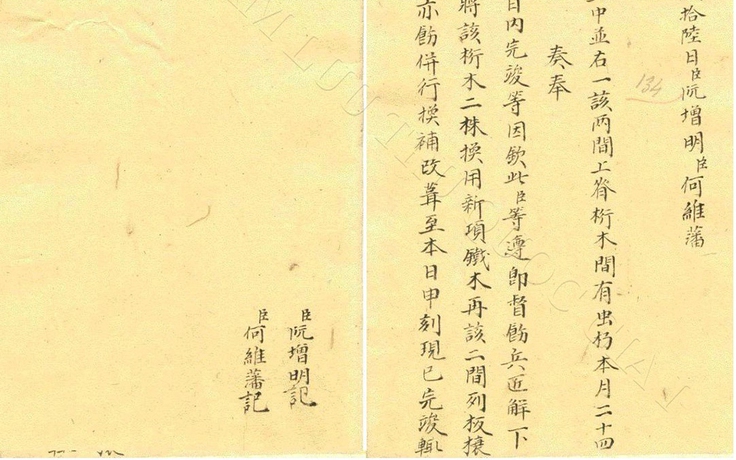 拾陸日臣阮增明臣何維藩
中並右一該兩間上脊桁木間有出朽本月二十四
奏奉
日內完竣等因欽此臣等遵卽督飭兵匠解下
將該桁木二株換用新項鐵木再該二間列板榱
亦飭併行換補改葺至本日申刻現已完竣輒
臣阮增明記
臣何維藩記
134